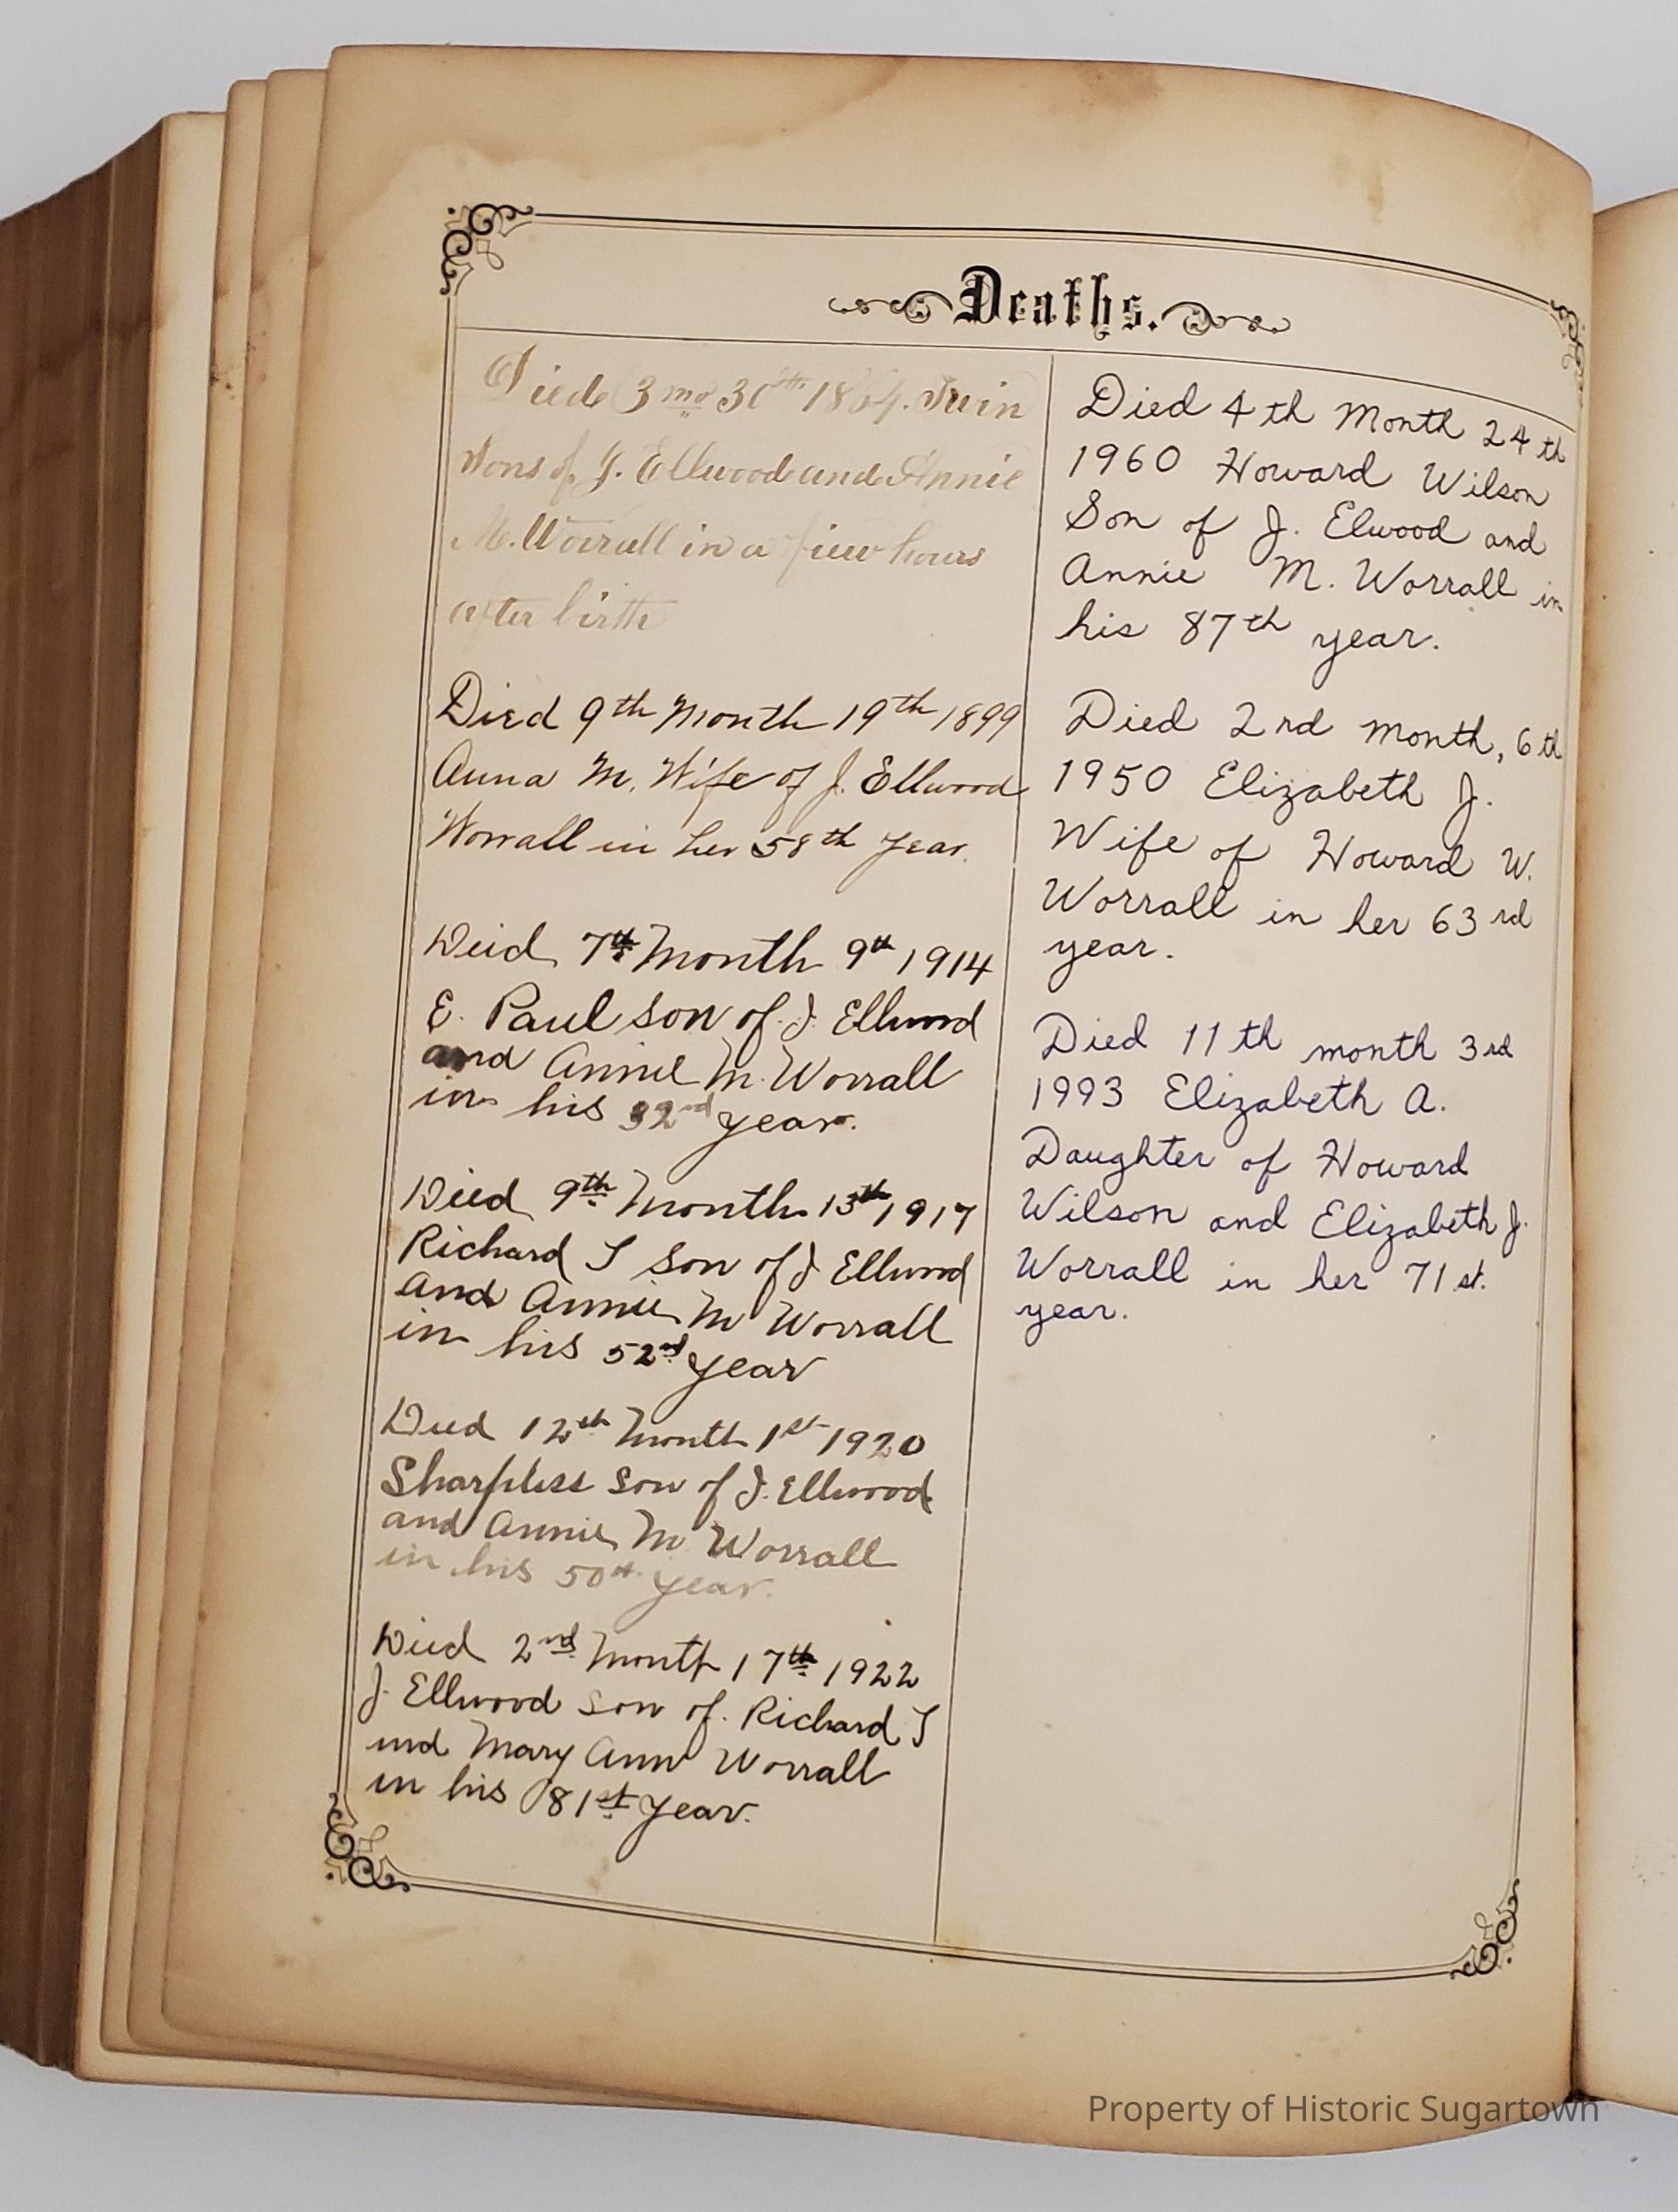 Deaths.
Died 3 mo 30th 1864. Twin
Sons of J. Ellwood and Annie
M. Worrall in a few hours
after birth
Died 9th Month 19th 1899
Anna M. Wife of J. Ellwood
Worrall in her 58th year.
Died 7th Month 9th 1914
E. Paul son of J. Ellwood
and Annie M. Worrall
in his 32nd year.
Died 9th Month 13th 1917
Richard T son of J Ellwood
and Annie M Worrall
in his 52nd year
Died 12th Month 1st 1920
Sharpless son of J. Ellwood
and Annie M Worrall
in his 50th year.
Died 2nd Month 17th 1922
J. Ellwood son of Richard T
and Mary Ann Worrall
in his 81st year.
Died 4th Month 24th
1960 Howard Wilson
Son of J. Elwood and
Annie M. Worrall in
his 87th year.
Died 2nd month, 6th
1950 Elizabeth J.
Wife of Howard W.
Worrall in her 63rd
year.
Died 11th month 3rd
1993 Elizabeth A.
Daughter of Howard
Wilson and Elizabeth J.
Worrall in her 71st.
year.
Property of Historic Sugartown